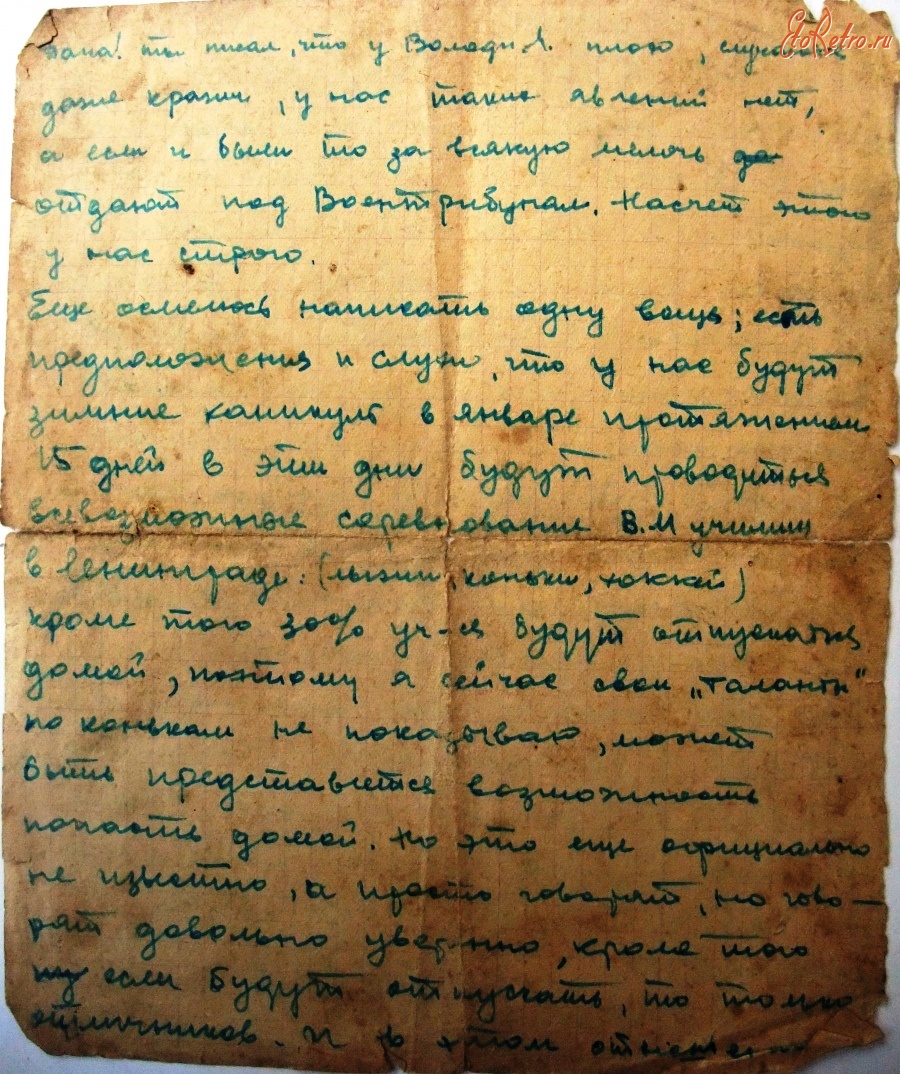 EtoRetro.ru
Папа! ты писал, что у Володи Л. плохо, случаются
даже кражи, у нас таких явлений нет,
а если и были то за всякую мелочь
отдают под Военттрибунал. Насчет этого
у нас строго.
Еще осмелюсь написать одну вещь; есть
предположения и слухи, что у нас будут
зимние каникулы в январе протяжением
15 дней в эти дни будут проводиться
всевозможные соревнование В.М училищ
в Ленинграде: (лыжи, коньки, хоккей)
кроме того 30% уч-ся будут отпускаться
домой, поэтому я сейчас свои „таланты"
по конькам не показываю, может
быть представится возможность
попасть домой. Но это еще официально
не известно, а просто говорят, но гово-
рят довольно уверенно, кроме того
если будут отпускать, то только
отличников. И в этом отношении